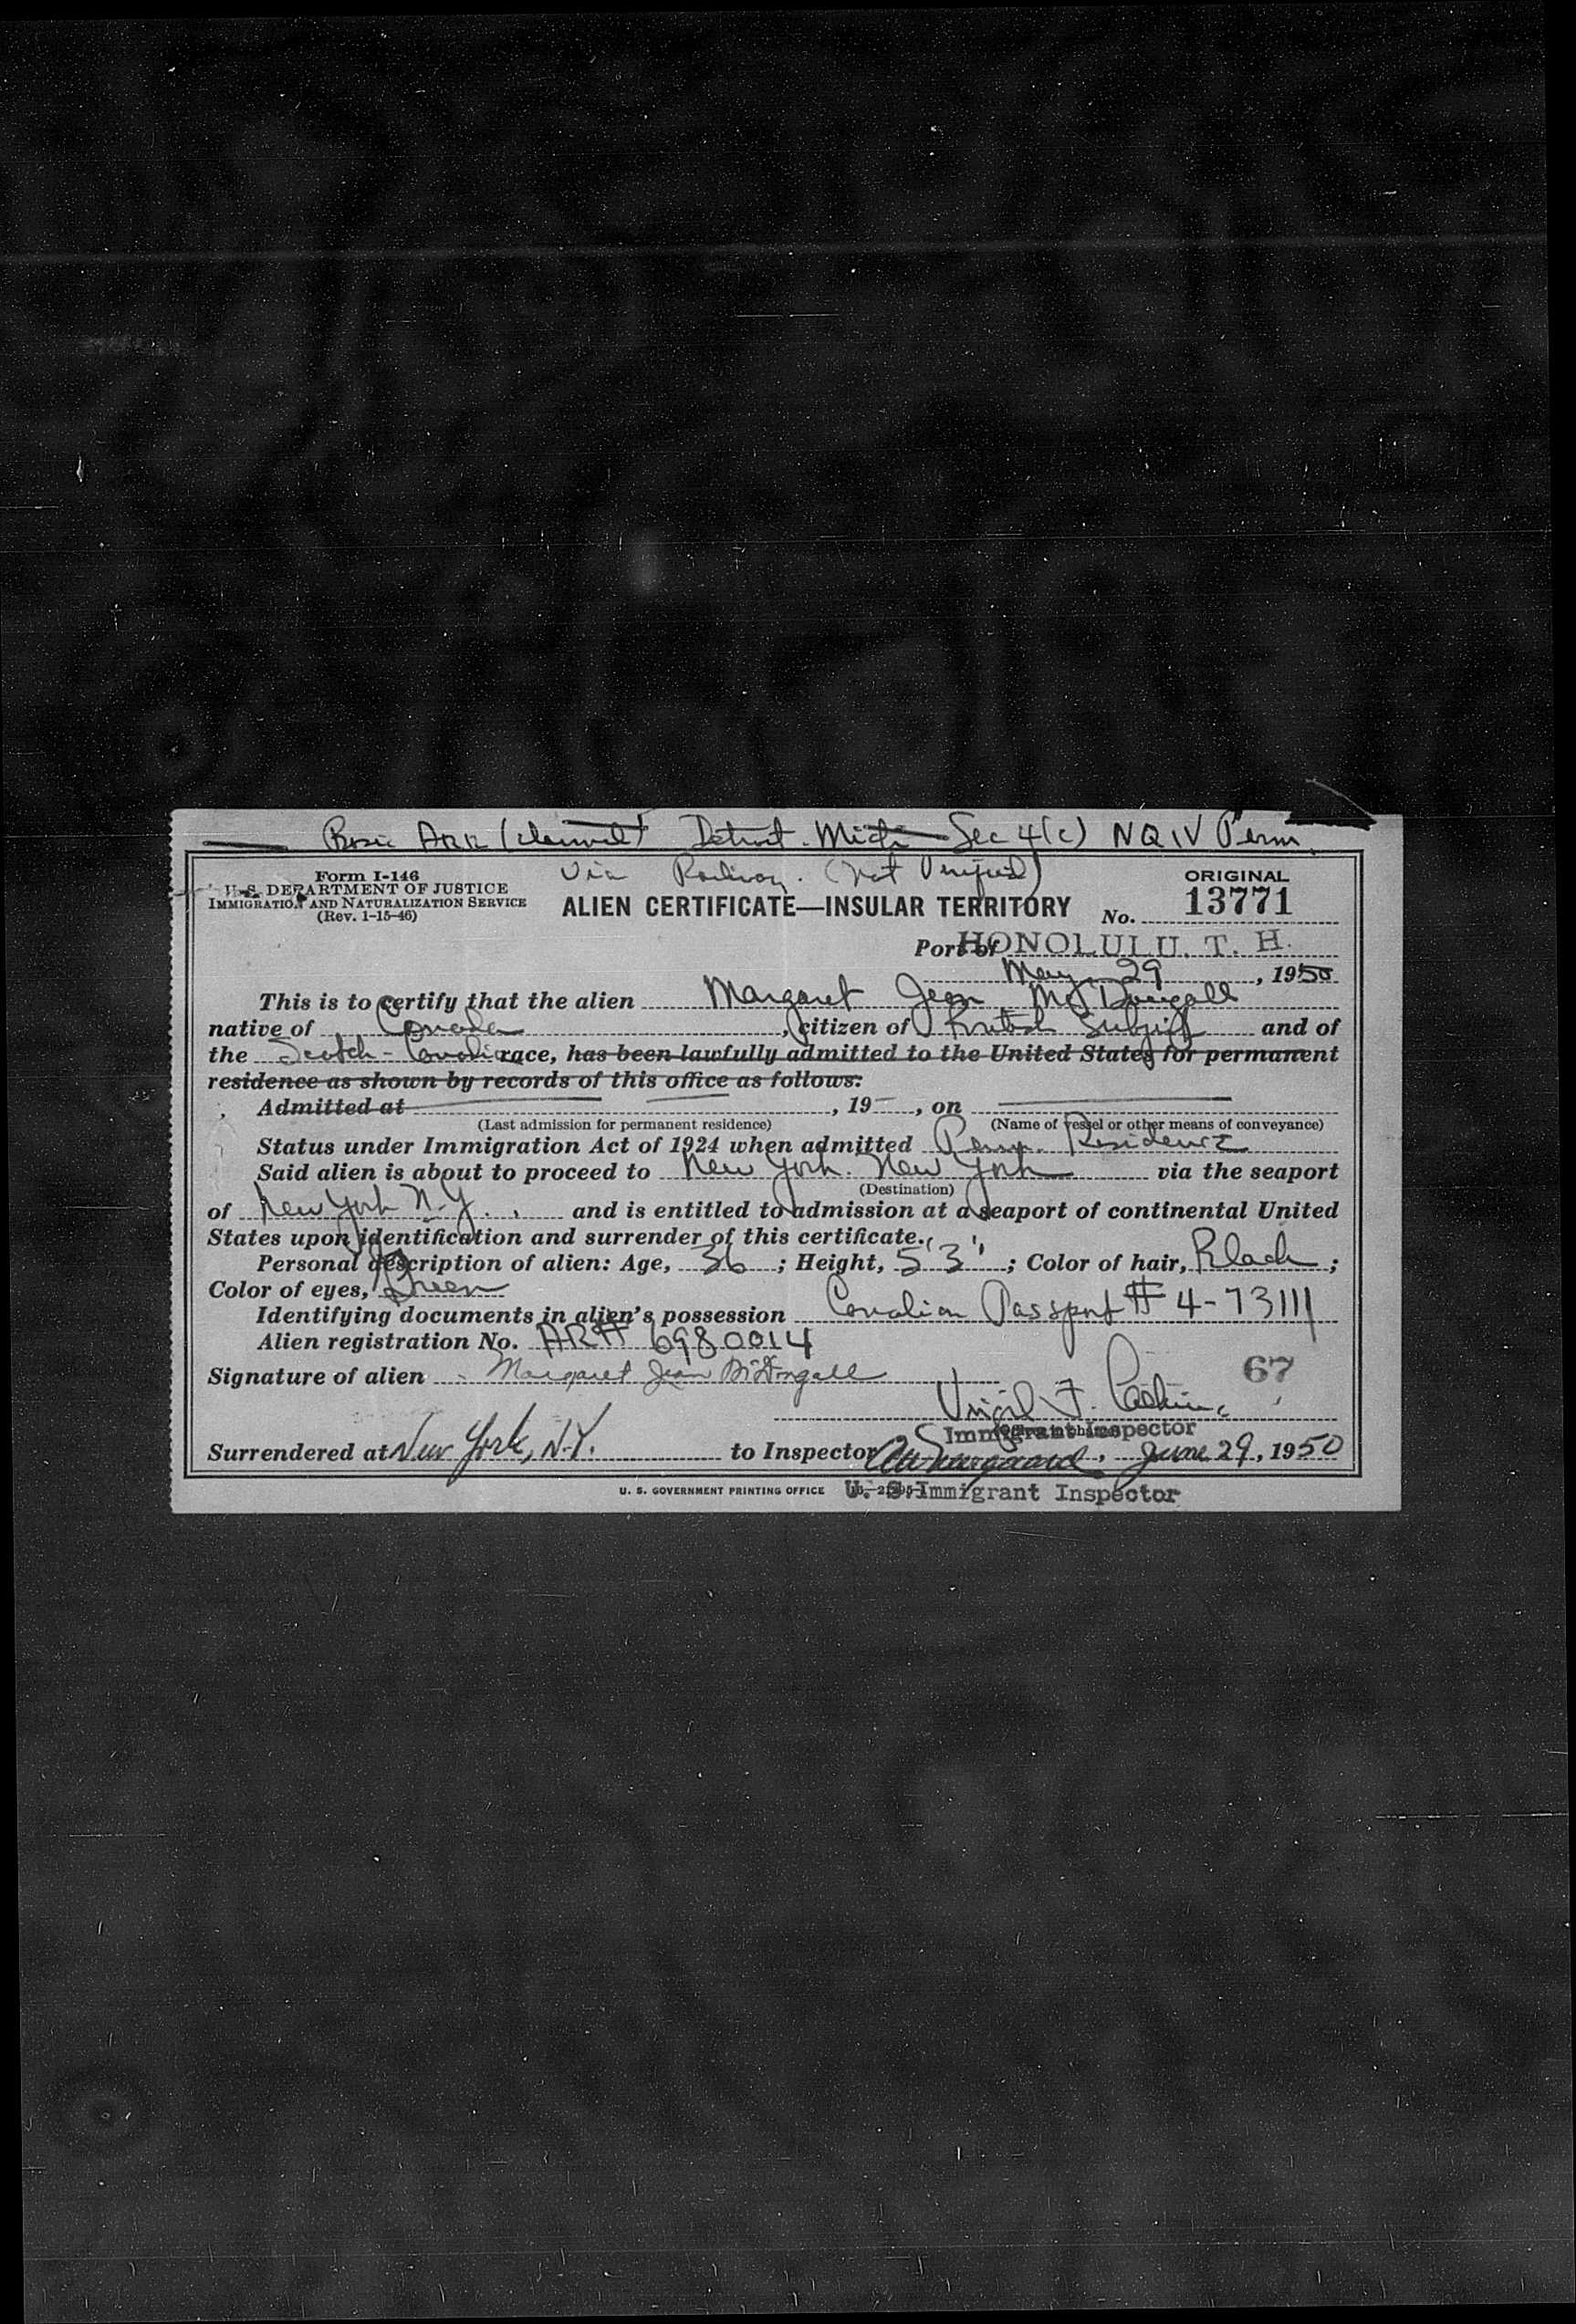 Detroit. Mich Sec 4(c) NQIV Perm.
Via Railway. (Not Verified)
Form I-146
U. S. DEPARTMENT OF JUSTICE
IMMIGRATION AND NATURALIZATION SERVICE
(Rev. 1-15-46)
ALIEN CERTIFICATE—INSULAR TERRITORY
ORIGINAL
No. 13771
Port of HONOLULU, T. H.
May 29, 1950
This is to certify that the alien Margaret Jean McDougall
native of Canada, citizen of British Subject and of
the Scotch-Canadian race, has been lawfully admitted to the United States for permanent
residence as shown by records of this office as follows:
Admitted at , 19 , on
(Last admission for permanent residence) (Name of vessel or other means of conveyance)
Status under Immigration Act of 1924 when admitted Perm. Residence
Said alien is about to proceed to New York. New York via the seaport
(Destination)
of New York N.Y. and is entitled to admission at a seaport of continental United
States upon identification and surrender of this certificate.
Personal description of alien: Age, 36; Height, 5' 3"; Color of hair, Black;
Color of eyes, Green
Identifying documents in alien's possession Canadian Passport # 4-73111
Alien registration No. AR# 6980014
Signature of alien Margaret Jean McDougall
67
Virgil F.
Immigrant Inspector
Surrendered at New York, N.Y. to Inspector , June 29, 1950
U. S. GOVERNMENT PRINTING OFFICE
U. S. Immigrant Inspector